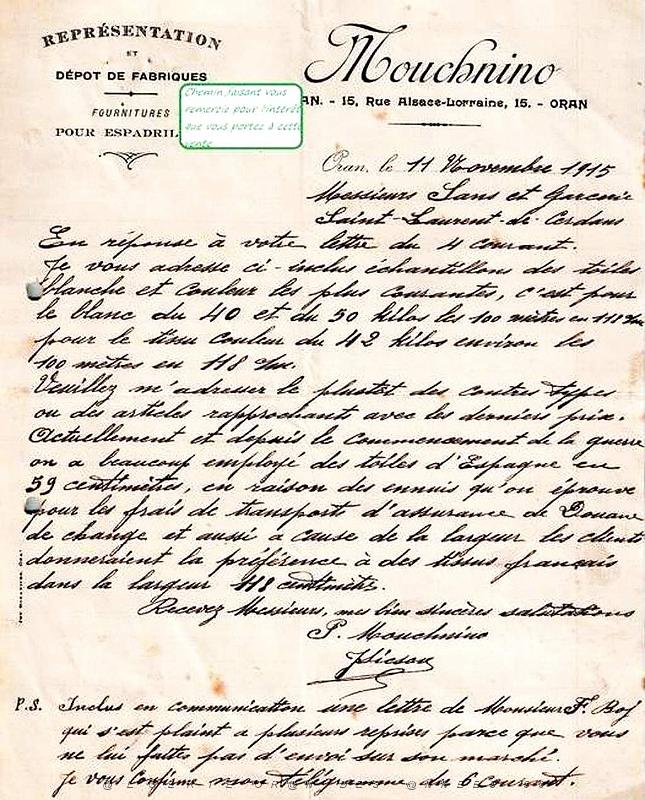 REPRÉSENTATION
ET
DÉPOT DE FABRIQUES
FOURNITURES
POUR ESPADRIL
Chemin faisant vous
remercie pour l'intérêt
que vous portez à cette
vente
Mouchnino
AN. - 15, Rue Alsace-Lorraine, 15. - ORAN
Oran, le 11 Novembre 1915
Messieurs Sans et Garcerie
Saint-Laurent-de-Cerdans
En réponse à votre lettre du 4 courant.
Je vous adresse ci-inclus échantillons des toiles
blanche et couleur les plus courantes, c'est pour
le blanc du 40 et du 50 kilos les 100 mètres en 118 c/m
pour le tissu couleur du 42 kilos environ les
100 mètres en 118 c/m.
Veuillez m'adresser le plustôt des contre types
ou des articles rapprochant avec les derniers prix.
Actuellement et depuis le commencement de la guerre
on a beaucoup employé des toiles d'Espagne en
59 centimètres, en raison des ennuis qu'on éprouve
pour les frais de transports d'assurance de Douane
de change et aussi a cause de la largeur les clients
donneraient la préférence à des tissus français
dans la largeur 118 centimètres.
Recevez Messieurs, mes bien sincères salutations
P. Mouchnino
P.S. Inclus en communication une lettre de Monsieur F. Boj
qui s'est plaint a plusieurs reprises parce que vous
ne lui faites pas d'envoi sur son marché.
Je vous confirme mon télégramme du 6 courant.